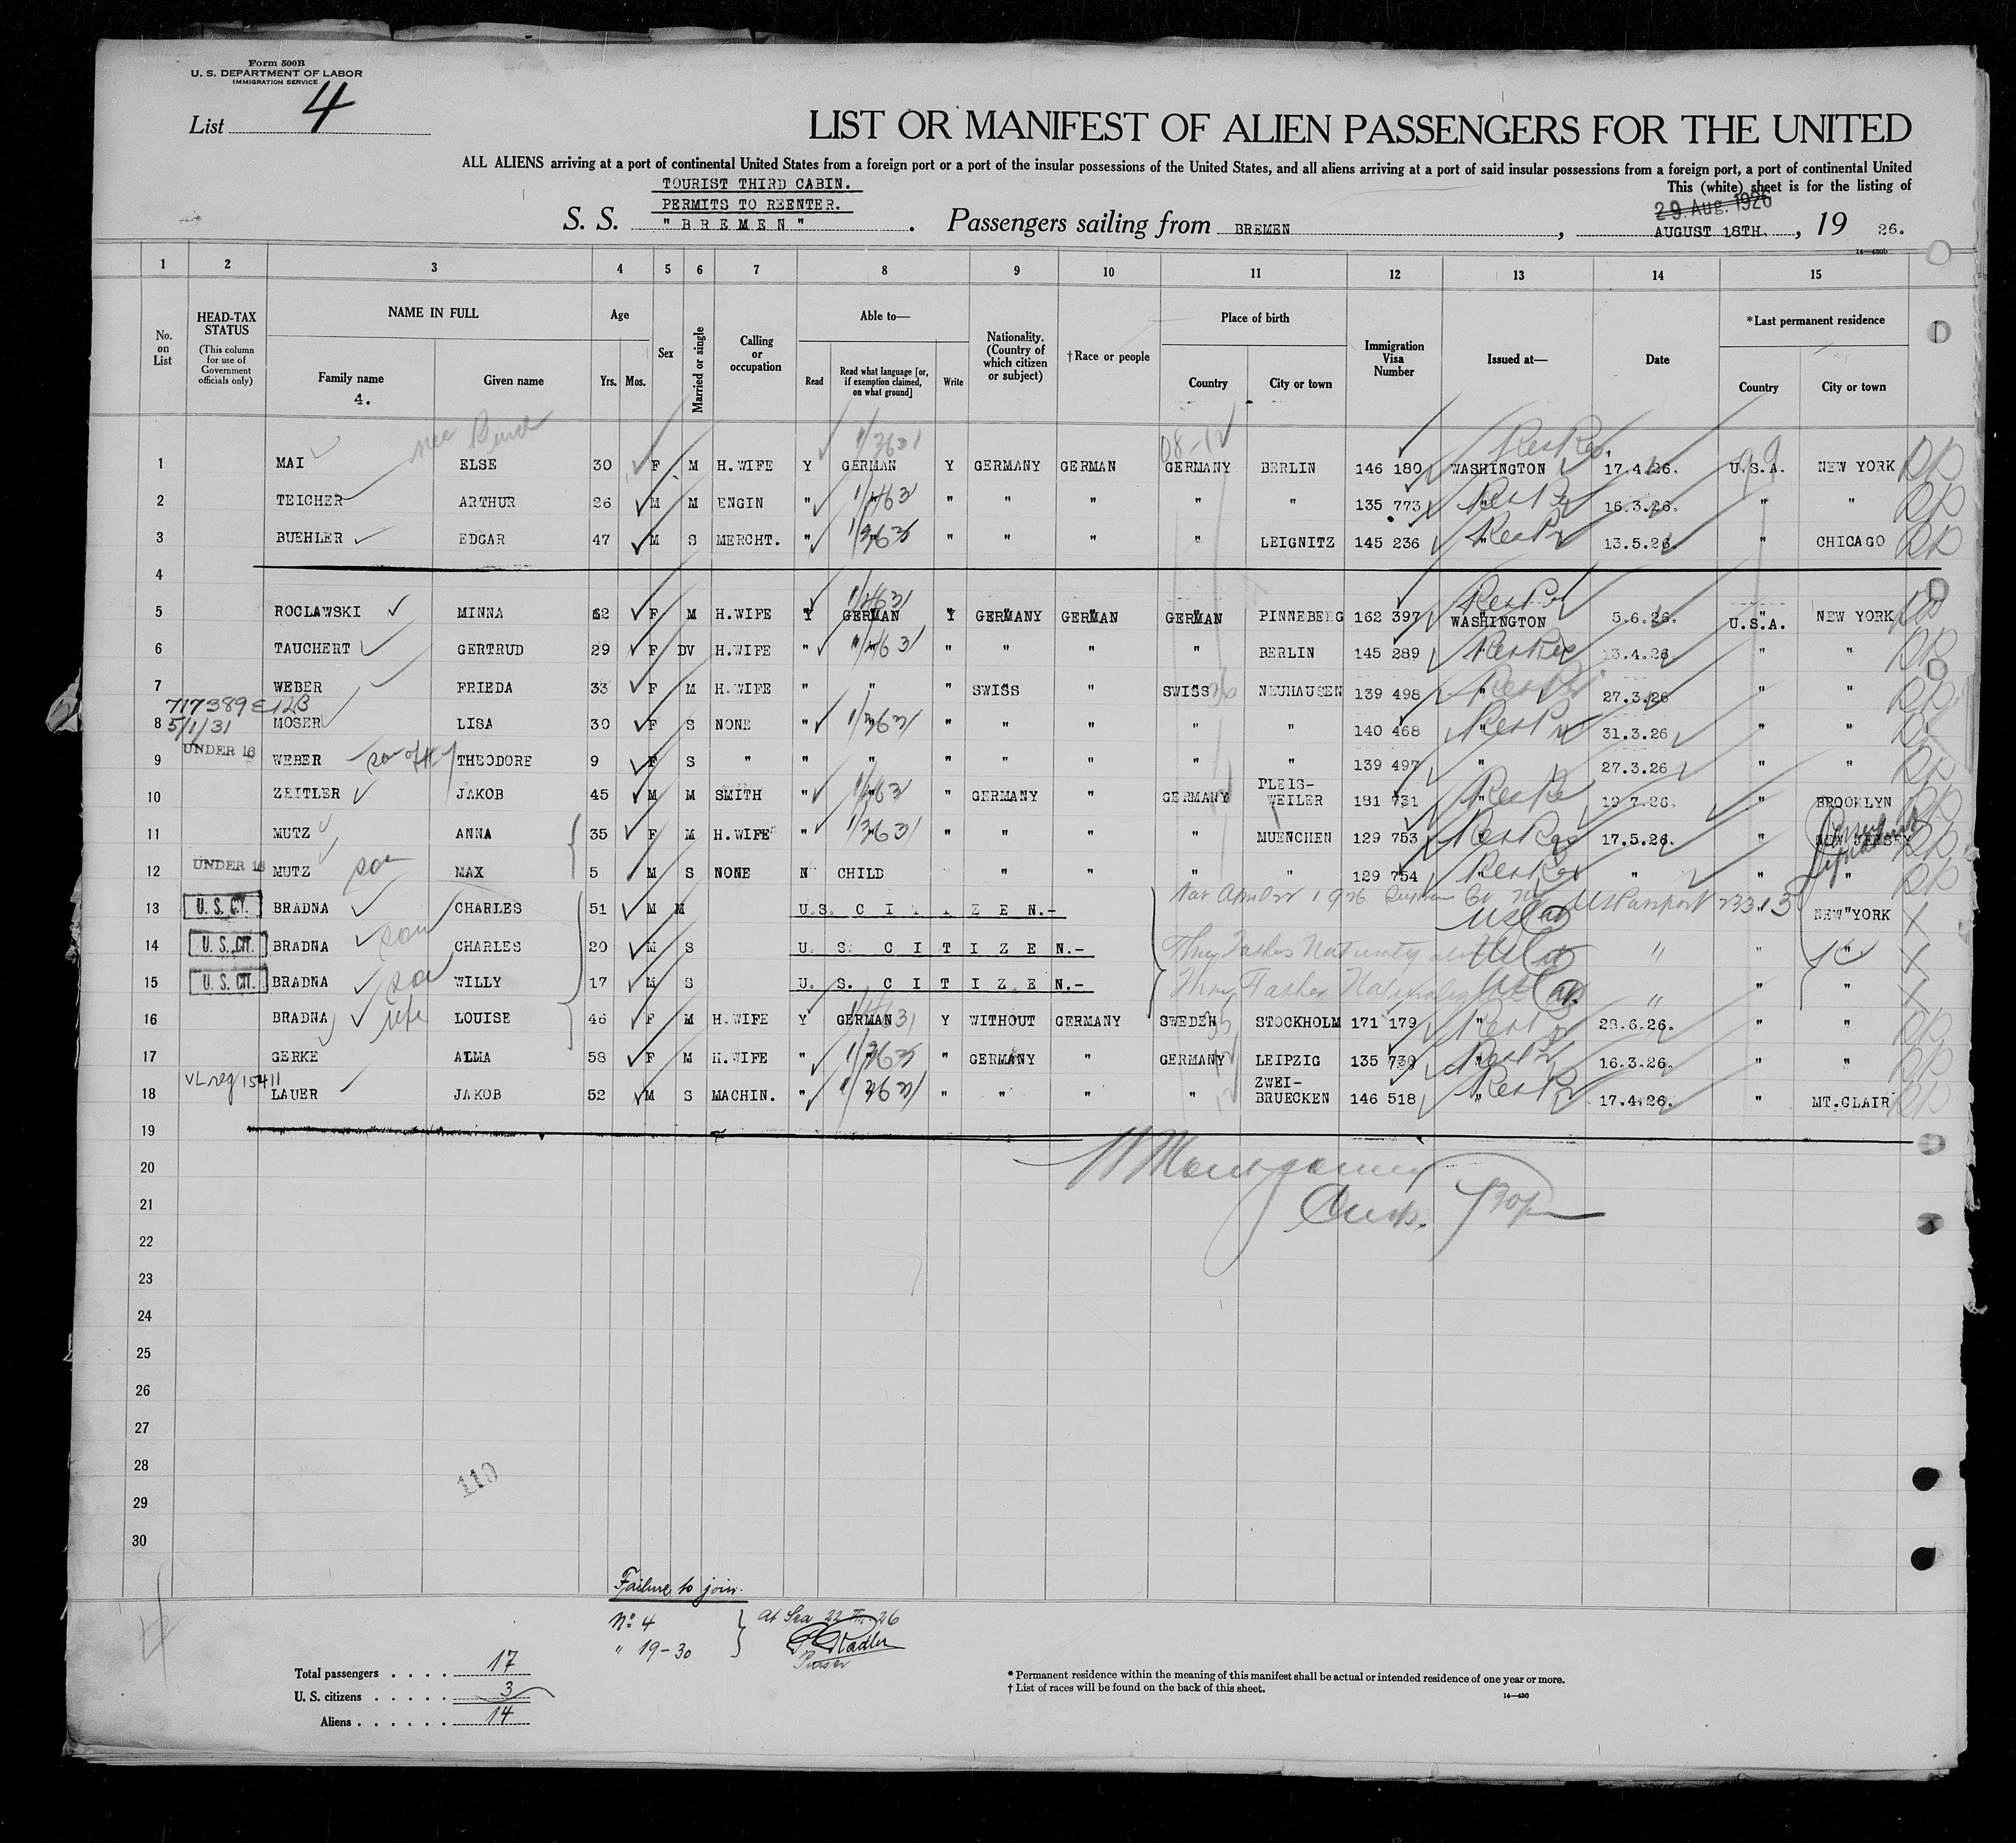 Form 500B
U. S. DEPARTMENT OF LABOR
IMMIGRATION SERVICE
List 4
LIST OR MANIFEST OF ALIEN PASSENGERS FOR THE UNITED
ALL ALIENS arriving at a port of continental United States from a foreign port or a port of the insular possessions of the United States, and all aliens arriving at a port of said insular possessions from a foreign port, a port of continental United
This (white) sheet is for the listing of
TOURIST THIRD CABIN.
PERMITS TO REENTER.
29. Aug. 1926
S. S. "BREMEN". Passengers sailing from BREMEN, AUGUST 18TH., 19 26.
14—430b
1 2 3 4 5 6 7 8 9 10 11 12 13 14 15
No. on List
HEAD-TAX STATUS
(This column for use of Government officials only)
NAME IN FULL
Family name
4.
Given name
Age
Yrs. Mos.
Sex
Married or single
Calling or occupation
Able to—
Read
Read what language [or, if exemption claimed, on what ground]
Write
Nationality. (Country of which citizen or subject)
†Race or people
Place of birth
Country
City or town
Immigration Visa Number
Issued at—
Date
*Last permanent residence
Country
City or town
1 MAI ELSE 30 F M H.WIFE Y GERMAN Y GERMANY GERMAN GERMANY BERLIN 146 180 WASHINGTON 17.4.26. U.S.A. NEW YORK
2 TEICHER ARTHUR 26 M M ENGIN " " " " " " " 135 773 " 16.3.26. " "
3 BUEHLER EDGAR 47 M S MERCHT. " " " " " " LEIGNITZ 145 236 " 13.5.26. " CHICAGO
4
5 ROCLAWSKI MINNA 62 F M H.WIFE Y GERMAN Y GERMANY GERMAN GERMAN PINNEBERG 162 397 WASHINGTON 5.6.26. U.S.A. NEW YORK
6 TAUCHERT GERTRUD 29 F DV H.WIFE " " " " " " BERLIN 145 289 " 13.4.26. " "
7 WEBER FRIEDA 33 F M H.WIFE " " " SWISS " SWISS NEUHAUSEN 139 498 " 27.3.26 " "
717389 E12B
8 5/1/31 MOSER LISA 30 F S NONE " " " " " " " 140 468 " 31.3.26 " "
9 UNDER 16 WEBER son of #7 THEODORE 9 F S " " " " " " " " 139 497 " 27.3.26 " "
10 ZEITLER JAKOB 45 M M SMITH " " " GERMANY " GERMANY PLEIS-WEILER 181 731 " 19.7.26. " BROOKLYN
11 MUTZ ANNA 35 F M H.WIFE " " " " " " MUENCHEN 129 753 " 17.5.26. " NEW JERSEY
12 UNDER 16 MUTZ son MAX 5 M S NONE N CHILD " " " " 129 754 " " " "
13 U. S. CIT. BRADNA CHARLES 51 M M U.S. CITIZEN.- US Passport " NEW YORK
14 U. S. CIT. BRADNA son CHARLES 20 M S U. S. CITIZEN.- " " "
15 U. S. CIT. BRADNA son WILLY 17 M S U. S. CITIZEN.- " " "
16 BRADNA wife LOUISE 46 F M H.WIFE Y GERMAN Y WITHOUT GERMANY SWEDEN STOCKHOLM 171 179 " 28.6.26. " "
17 GERKE ALMA 58 F M H.WIFE " " " GERMANY " GERMANY LEIPZIG 135 739 " 16.3.26. " "
18 VL reg 15411 LAUER JAKOB 52 M S MACHIN. " " " " " " ZWEI-BRUECKEN 146 518 " 17.4.26. " MT.CLAIR
19
20
21
22
23
24
25
26
27
28
29
30
110
Failure to join.
No 4
" 19-30
At Sea 22 VIII 26
Purser
Total passengers . . . . 17
U. S. citizens . . . . . 3
Aliens . . . . . . 14
* Permanent residence within the meaning of this manifest shall be actual or intended residence of one year or more.
† List of races will be found on the back of this sheet.
14—430